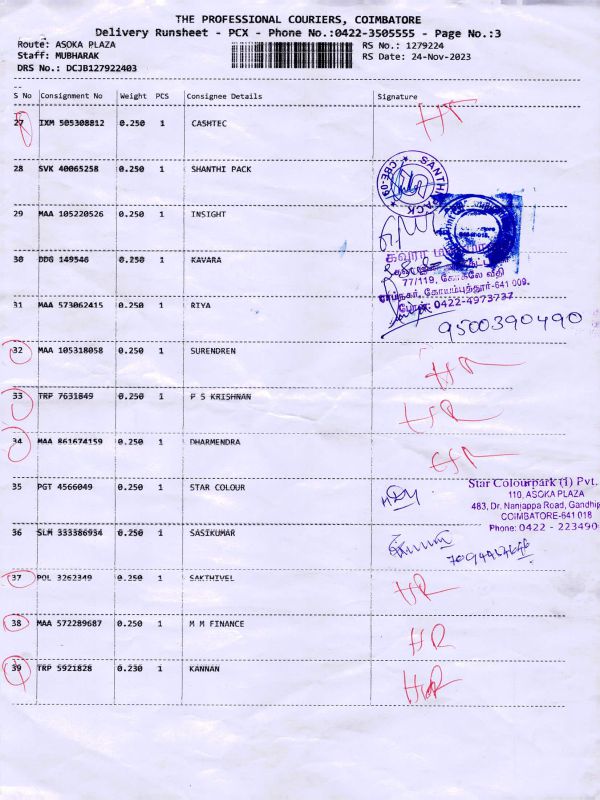 THE PROFESSIONAL COURIERS, COIMBATORE
Delivery Runsheet - PCX - Phone No.:0422-3505555 - Page No.:3
Route: ASOKA PLAZA RS No.: 1279224
Staff: MUBHARAK RS Date: 24-Nov-2023
DRS No.: DCJB127922403
S No Consignment No Weight PCS Consignee Details Signature
27 IXM 505308812 0.250 1 CASHTEC
28 SVK 40065258 0.250 1 SHANTHI PACK
SANTHI PACK
CBE-09
29 MAA 105220526 0.250 1 INSIGHT
30 DDG 149546 0.250 1 KAVARA
77/119, கோகலே வீதி
ராம்நகர், கோயம்புத்தூர்-641 009.
போன்: 0422-4973737
31 MAA 573062415 0.250 1 RIYA
9500390490
32 MAA 105318058 0.250 1 SURENDREN HR
33 TRP 7631849 0.250 1 P S KRISHNAN HR
34 MAA 861674159 0.250 1 DHARMENDRA HR
35 PGT 4566049 0.250 1 STAR COLOUR
Star Colourpark (I) Pvt.
110, ASOKA PLAZA
483, Dr. Nanjappa Road, Gandhip
COIMBATORE-641 018
Phone: 0422 - 223490
36 SLM 333386934 0.250 1 SASIKUMAR
37 POL 3262349 0.250 1 SAKTHIVEL HR
38 MAA 572289687 0.250 1 M M FINANCE HR
39 TRP 5921828 0.230 1 KANNAN